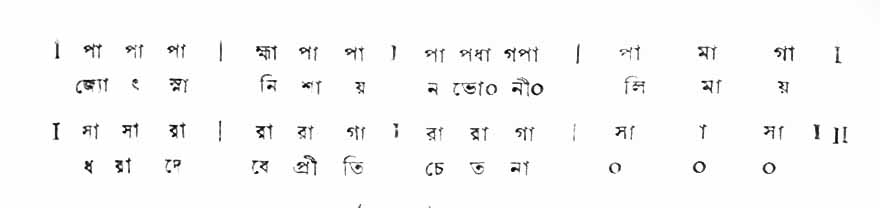 I পা পা পা | হ্মা পা পা I পা পধা গপা | পা মা গা I
জ্যো ৎ স্না নি শা য় ন ভো০ নী০ লি মা য়
I সা সা রা | রা রা গা I রা রা গা | সা া সা I II
ধ রা দে বে প্রী তি চে ত না ০ ০ ০